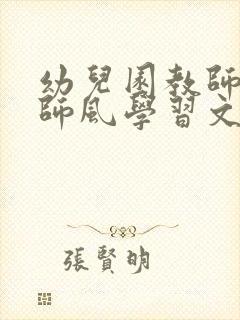 幼兒園教師
師風學習文
張賢明